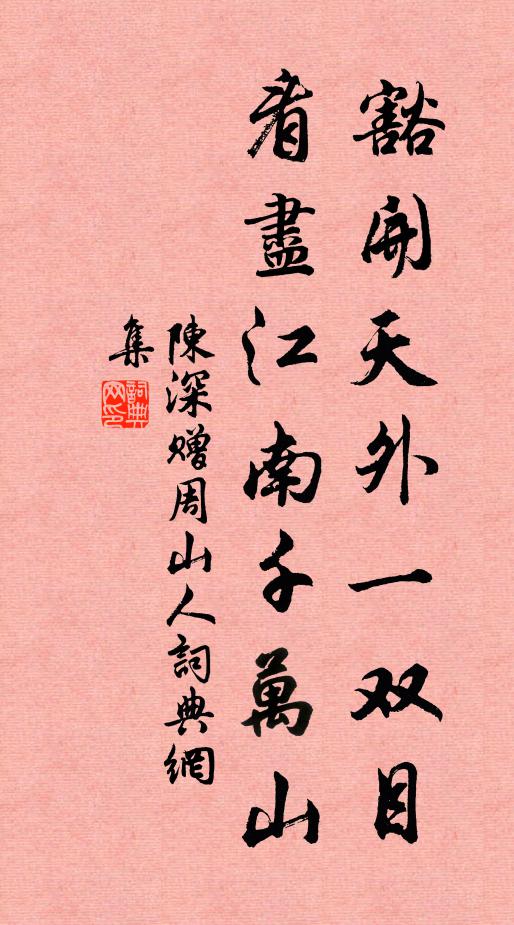 豁開天外一双目
看盡江南千萬山
陳深贈周山人詞典網
集
詞典
网印